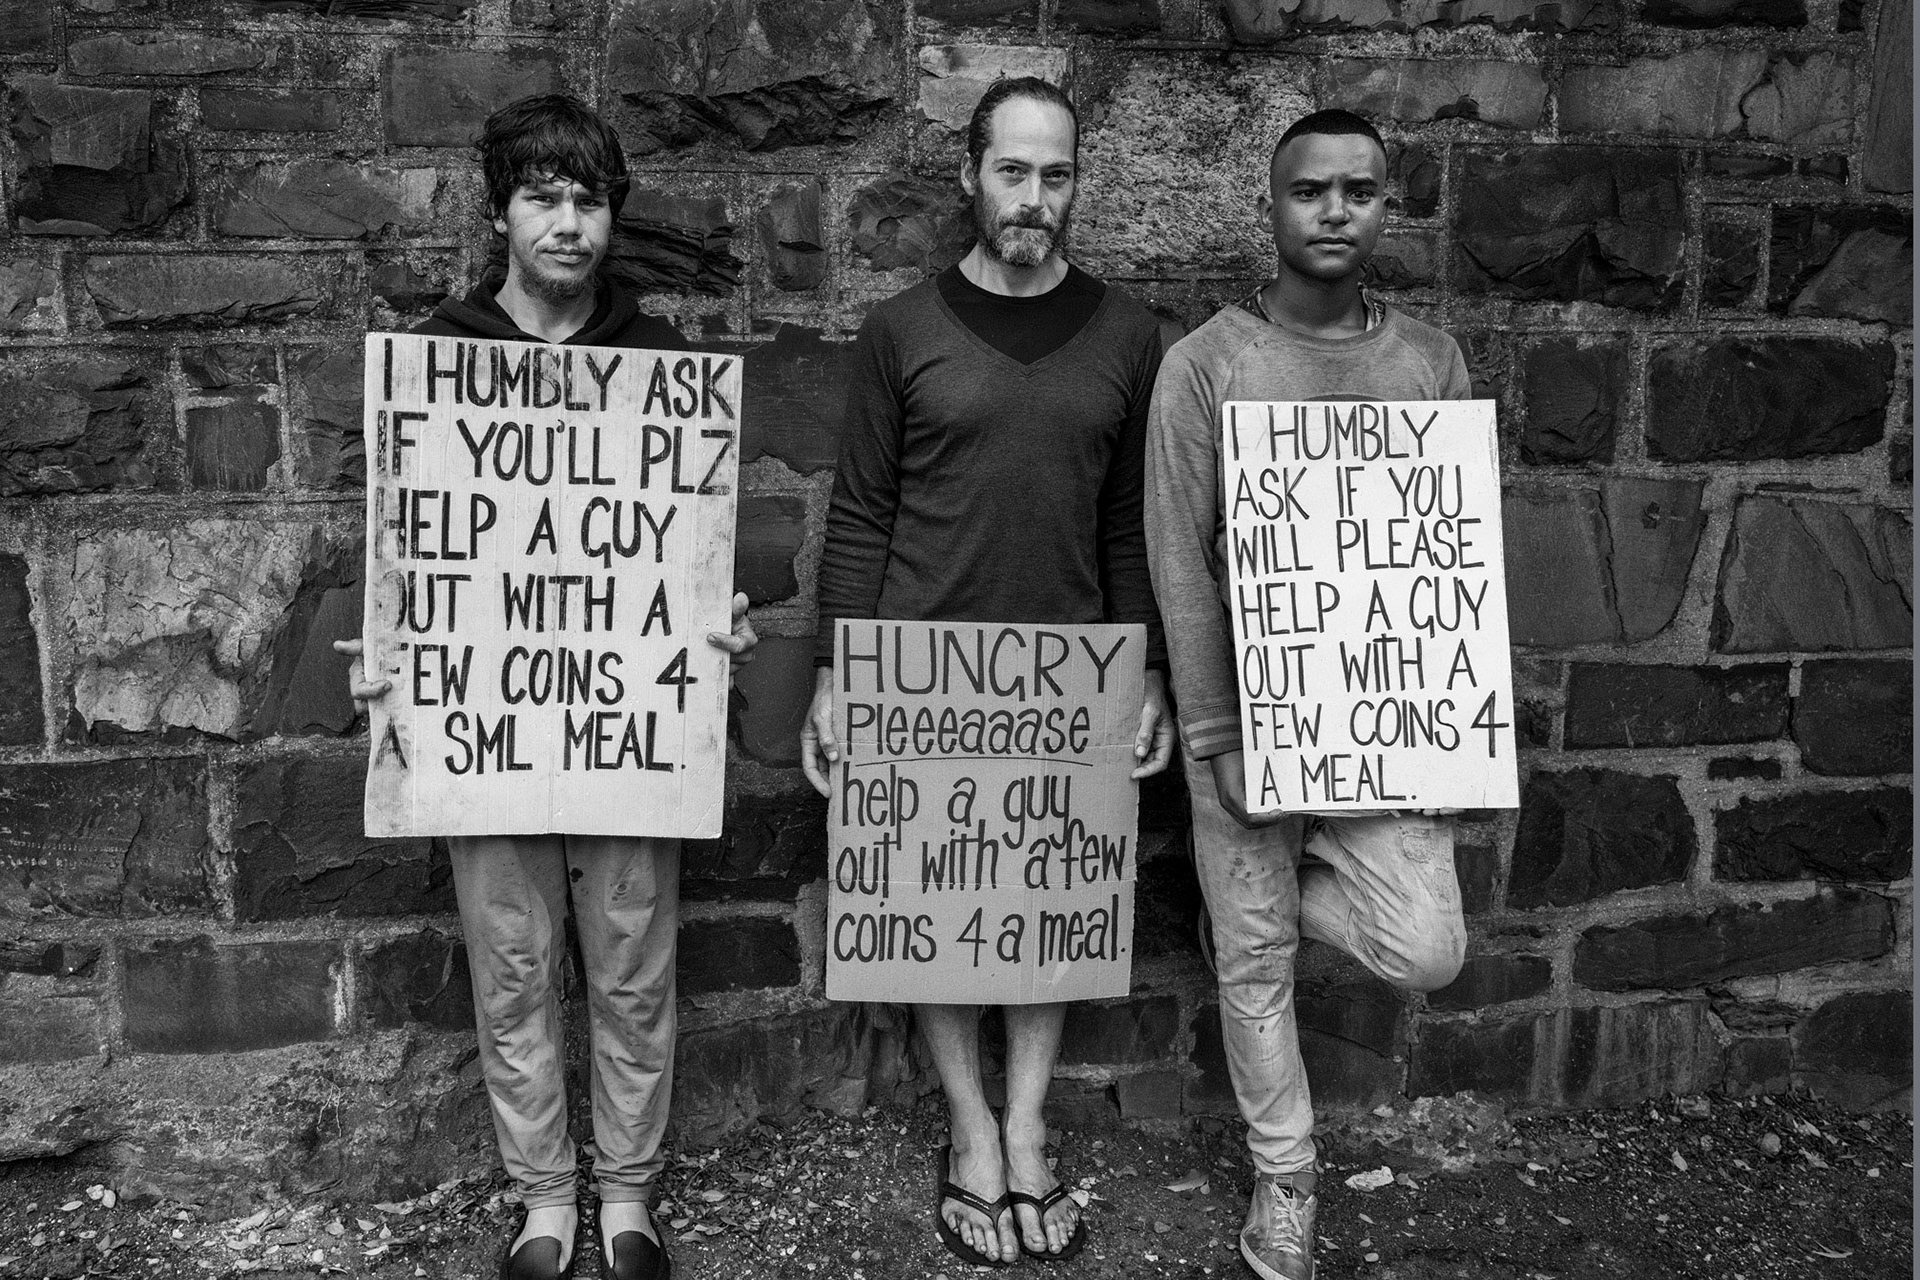 I HUMBLY ASK
IF YOU'LL PLZ
HELP A GUY
OUT WITH A
FEW COINS 4
A SML MEAL.
HUNGRY
Pleeeaaase
help a guy
out with a few
coins 4 a meal.
I HUMBLY
ASK IF YOU
WILL PLEASE
HELP A GUY
OUT WITH A
FEW COINS 4
A MEAL.